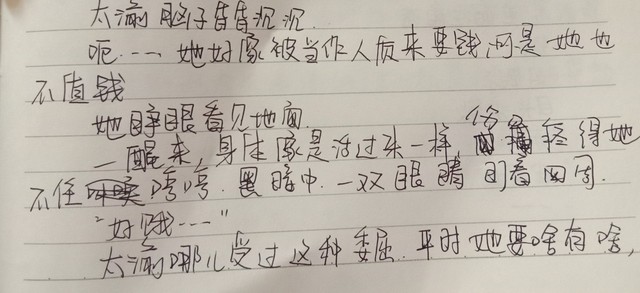 太渝脑子昏昏沉沉.
呃…她好像被当作人质来要钱,可是她也
不值钱
她睁眼看见地面.
一醒来,身体像是活过来一样, 伤痛 轻得她
不住 哼哼.黑暗中.一双眼睛 盯着四周.
“好饿…”
太渝哪儿受过这种委屈.平时她要啥有啥,